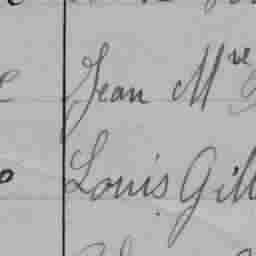 Jean Mre
Louis Gill